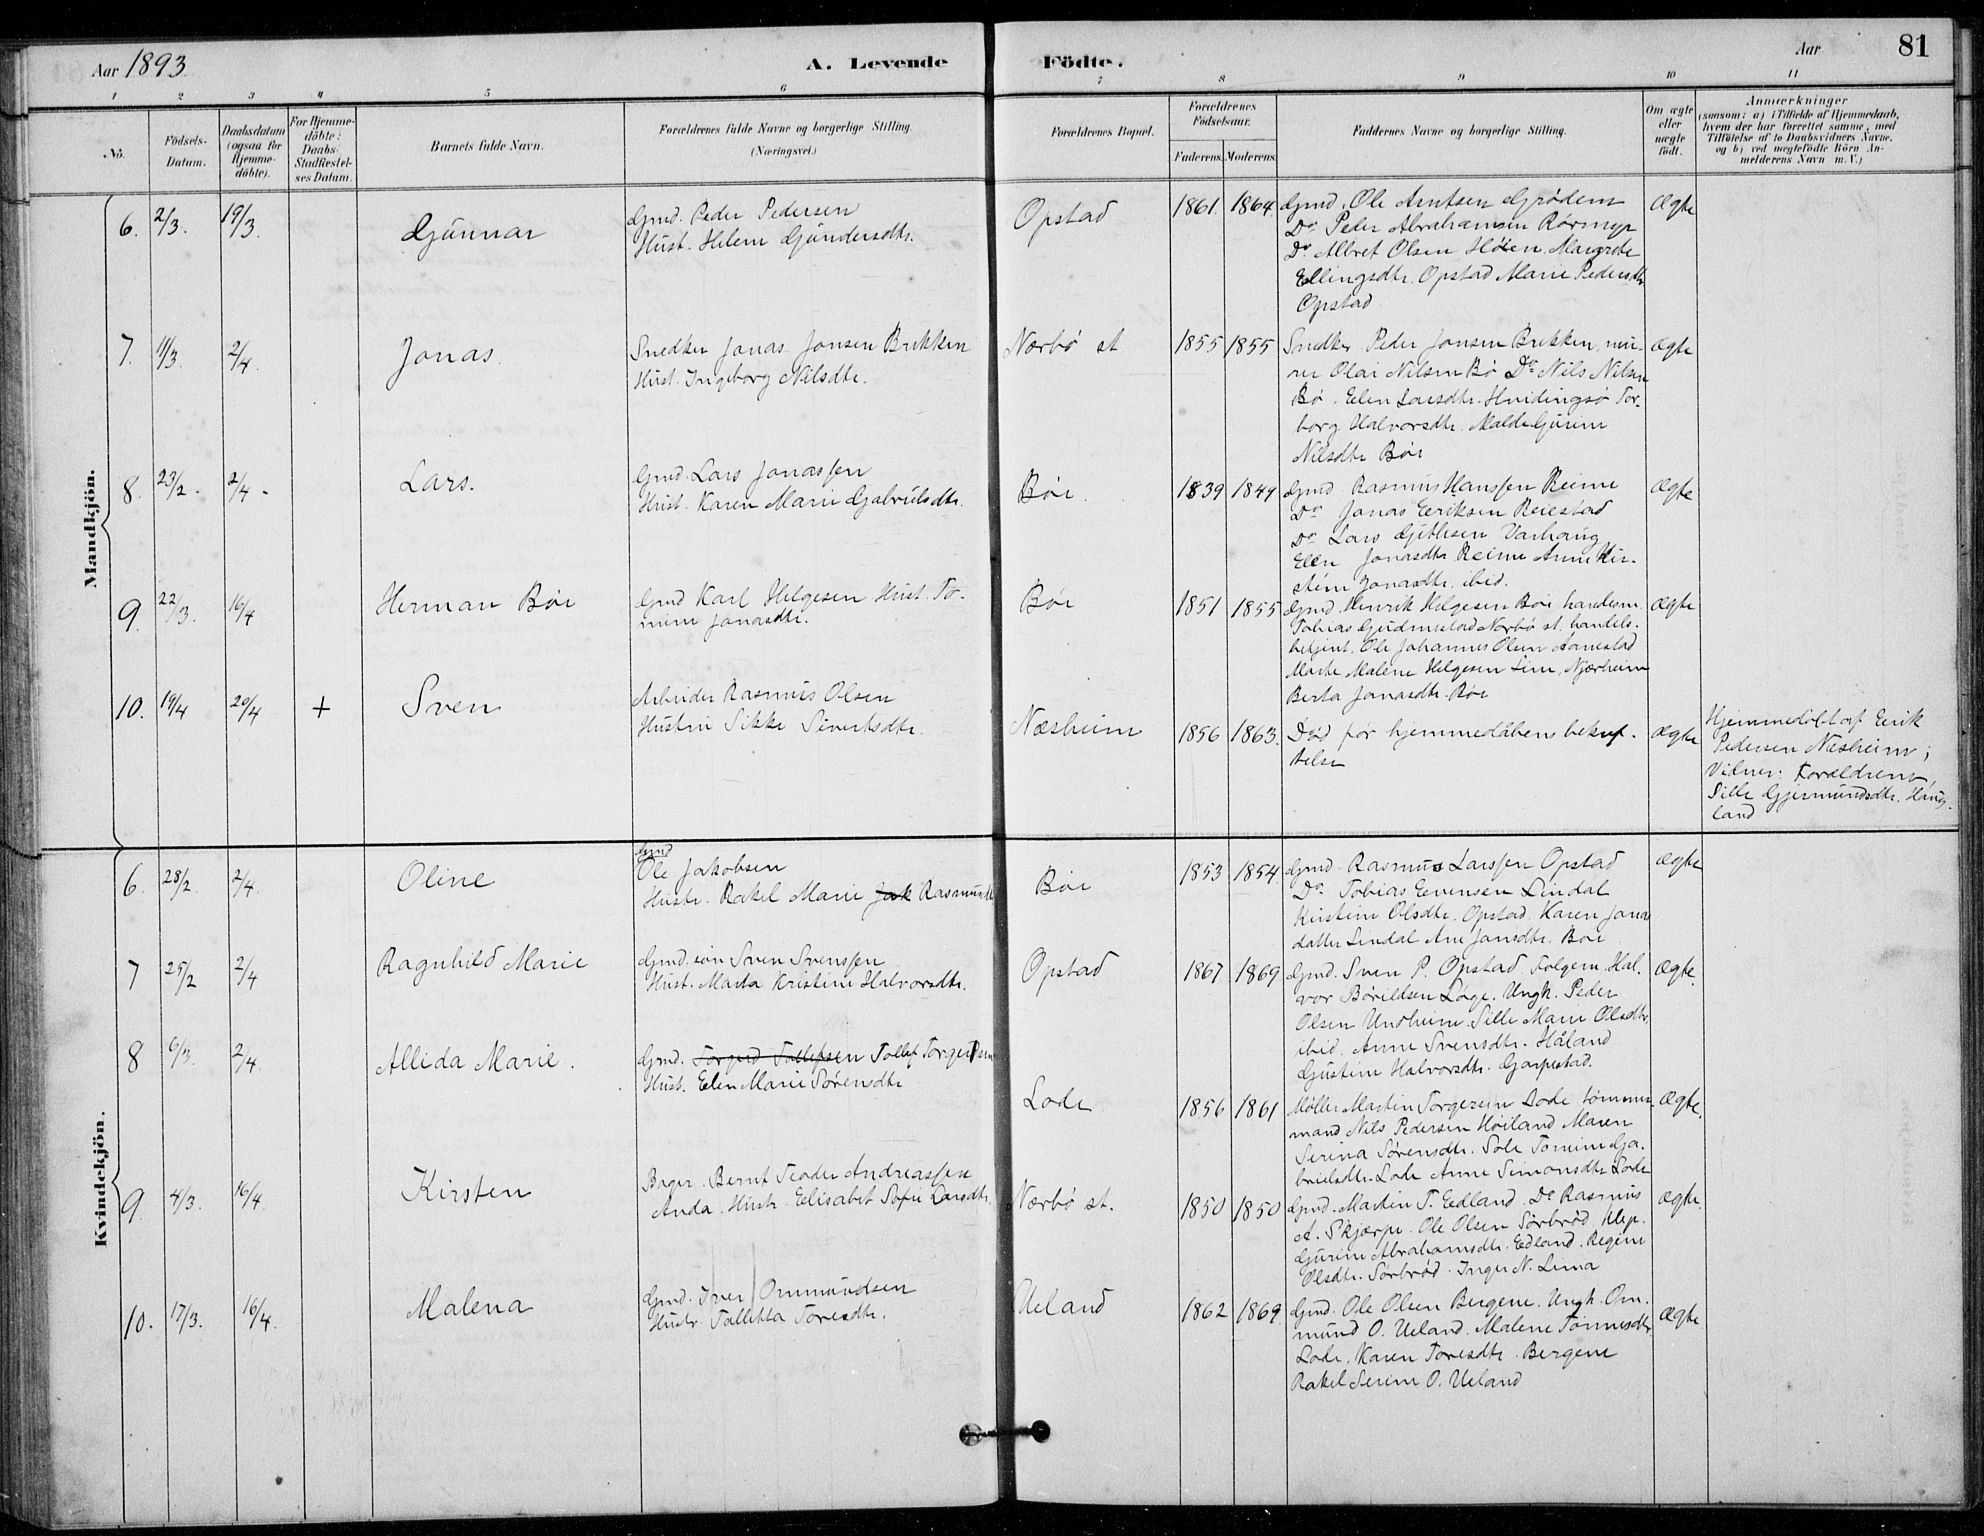 Aar 1893.
A. Levende Födte.
Aar
81
1 2 3 4 5 6 7 8 9 10 11
No.
Födsels-
Datum.
Daabsdatum
(ogsaa for
Hjemme-
döbte).
For Hjemme-
döbte:
Daabs-
Stadfæstel-
ses Datum.
Barnets fulde Navn.
Forældrenes fulde Navne og borgerlige Stilling.
(Næringsvei.)
Forældrenes Bopæl.
Forældrenes
Födselsaar.
Faderens. Moderens.
Faddernes Navne og borgerlige Stilling.
Om ægte
eller
uægte
födt.
Anmærkninger
(saasom: a) i Tilfælde af Hjemmedaab,
hvem der har forrettet samme, med
Tilföielse af to Daabsvidners Navne,
og b) ved uægtefödte Börn An-
melderens Navn m. V.)
Mandkjön.
6. 2/3. 19/3. Gunnar
Gmd. Peder Pedersen
Hust. Helene Gundersdtr.
Opstad 1861. 1864.
Gmd. Ole Arntsen Grødem
Do Peder Abrahamsen Rørmyr
Do Albret Olsen Høien. Margrete
Ellingsdtr. Opstad Marie Pedersdtr
Opstad
Ægte
7. 11/3. 2/4. Jonas.
Snedker Jonas Jonsen Brekken
Hust. Ingeborg Nilsdtr.
Nærbø st 1855 1855
Snedker Peder Jonsen Brekken, mu-
rer Olai Nilsen Bø Do Nils Nilsen
Bø. Elen Larsdtr. Hvidingsø Tor-
borg Halvorsdtr. Malde Gurine
Nilsdtr Bøe
Ægte
8. 23/2. 2/4. Lars.
Gmd. Lars Jonassen
Hust. Karen Marie Gabrielsdtr.
Bøe. 1839 1849
Gmd Rasmus Hanssen Reime
Do Jonas Eeriksen Reiestad
Do Lars Githesen Varhaug
Elen Jonasdtr Reime Anne Kir-
stine Jonasdtr. ibid.
Ægte
9. 22/3. 16/4 Herman Bøe
Gmd Karl Helgesen Hust. To-
mine Jonasdtr.
Bøe 1851 1855
Gmd. Henrik Helgesen Bøe, handelsm.
Tobias Gudmestad Nærbø st. handels-
betjent. Ole Johannes Olsen Aanestad
Marte Malene Helgesen Lim, Njærheim
Berta Jonasdtr. Bøe
Ægte
10. 19/4 20/4 + Sven
Arbeider Rasmus Olsen
Hustru Sikke Sivertsdtr.
Næsheim 1856 1863.
Død før hjemmedåbens bekræf-
telse
Ægte
Hjemmedøbt af Eerik
Pedersen Næsheim;
Vidner: Forældrene,
Sille Gjermundsdtr. Haug-
land
Kvindekjön.
6. 28/2. 2/4. Oline
Gmd
Ole Jakobsen
Hustr. Rakel Marie Jak Rasmusdtr
Bøe 1853 1854.
Gmd. Rasmus Larssen Opstad
Do. Tobias Eevensen Lindal
Kirstine Olsdtr. Opstad. Karen Jonas
datter Lindal Ane Jansdtr. Bøe
Ægte
7 25/2 2/4 Ragnhild Marie
Gmd.søn Sven Svenssen
Hust. Marta Kristine Halvorsdtr.
Opstad 1867 1869
Gmd. Sven P. Opstad. Folgem. Hal-
vor Børildsen Løge. Ungk. Peder
Olsen Undheim. Sille Marie Olsdtr.
ibid. Anne Svensdtr. Håland
Gustine Halvorsdtr. Garpestad.
Ægte.
8 6/3. 2/4. Allida Marie.
Gmd. Torger Tollefsen Tollef Torgersen
Hust. Elen Marie Sørensdtr
Lode 1856 1861
Møller Martin Torgersen Lode tømmer-
mand Nils Pedersen Høiland Maren
Serina Sørensdtr. Sole Tomine Ga-
brielsdtr. Lode Anne Simonsdtr Lode
Ægte.
9. 4/3. 16/4. Kirsten
Bager. Bernt Teodor Andreassen
Anda. Hustr. Eelisabet Sofie Larsdtr.
Nærbø st. 1850 1850
Gmd. Martin T. Eedland. Do Rasmus
A. Skjærpe. Ole Olsen Sørbrød, Klep.
Gurine Abrahamsdtr. Edland. Regine
Olsdtr. Sørbrød. Inger N. Lima
Ægte.
10. 17/3. 16/4. Malena
Gmd. Iver Ommundsen
Hustr. Tallitta Toresdtr.
Ueland 1862 1869.
Gmd. Ole Olsen Bergene. Ungk. Om-
mund O. Ueland. Malene Tønnesdtr
Lode. Karen Toresdtr. Bergene
Rakel Serine O. Ueland
Ægte